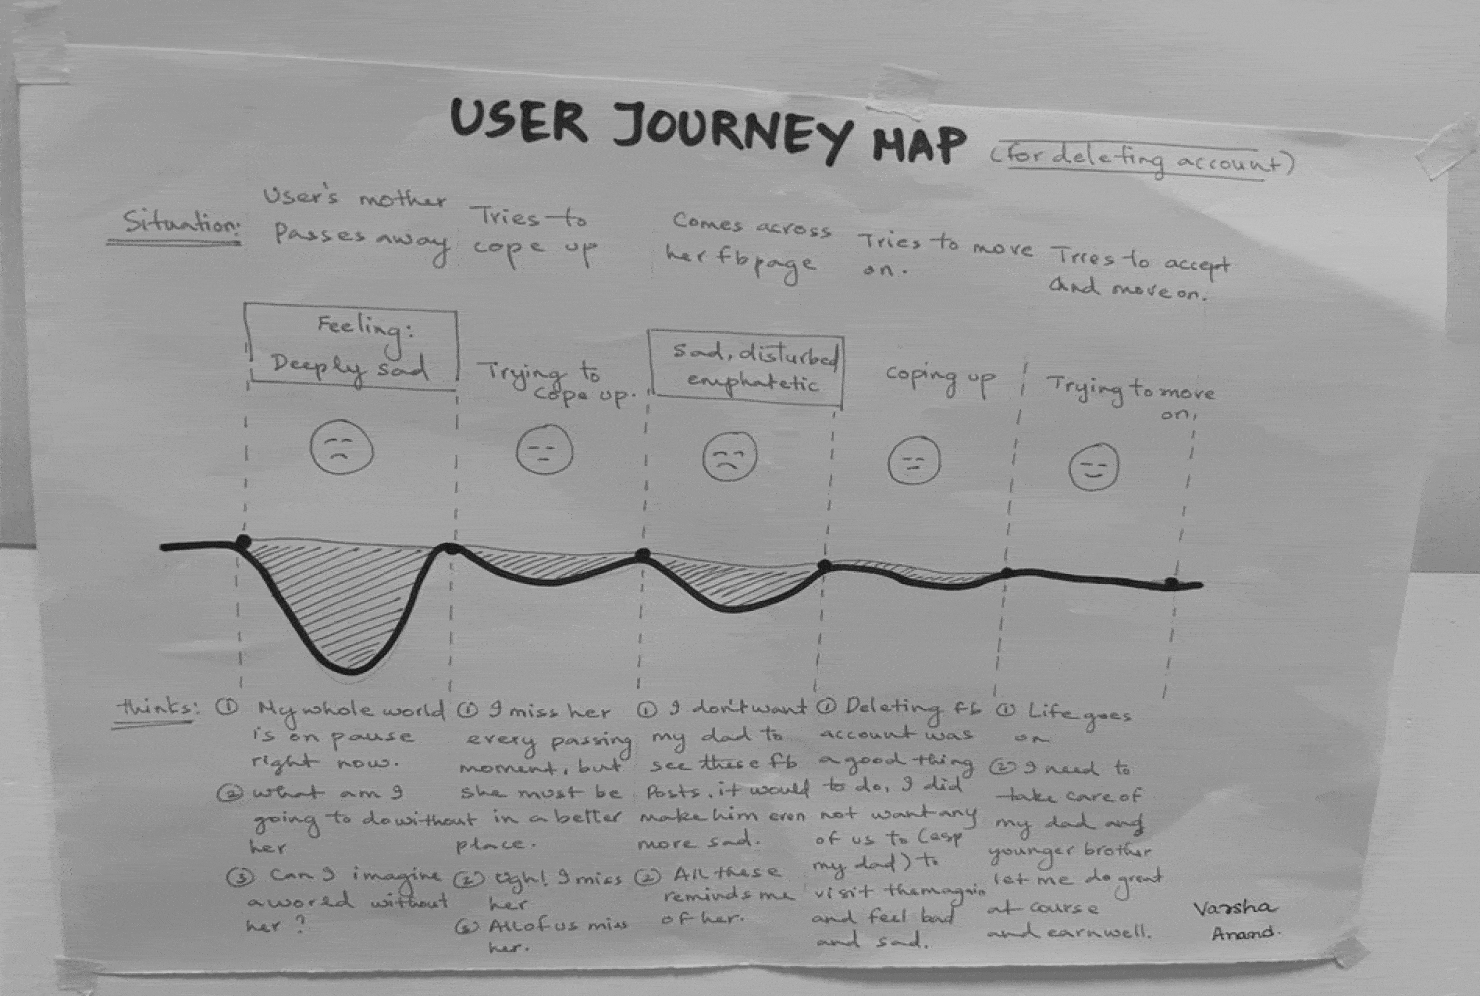 USER JOURNEY MAP (for deleting account)
Situation:
User's mother
Passes away
Tries to
cope up
Comes across
her fb page
Tries to move
on.
Tries to accept
and move on.
Feeling:
Deeply sad
Trying to
cope up.
Sad, disturbed
emphatetic
coping up
Trying to move
on,
thinks:
① My whole world
is on pause
right now.
② what am I
going to do without
her
③ Can I imagine
a world without
her?
① I miss her
every passing
moment, but
she must be
in a better
place.
② Ugh! I miss
her
③ All of us miss
her.
① I don't want
my dad to
see these fb
Posts, it would
make him even
more sad.
② All these
reminds me
of her.
① Deleting fb
account was
a good thing
to do, I did
not want any
of us to (esp
my dad) to
visit them again
and feel bad
and sad.
① Life goes
on
② I need to
take care of
my dad and
younger brother
let me do great
at course
and earn well.
Varsha
Anand.